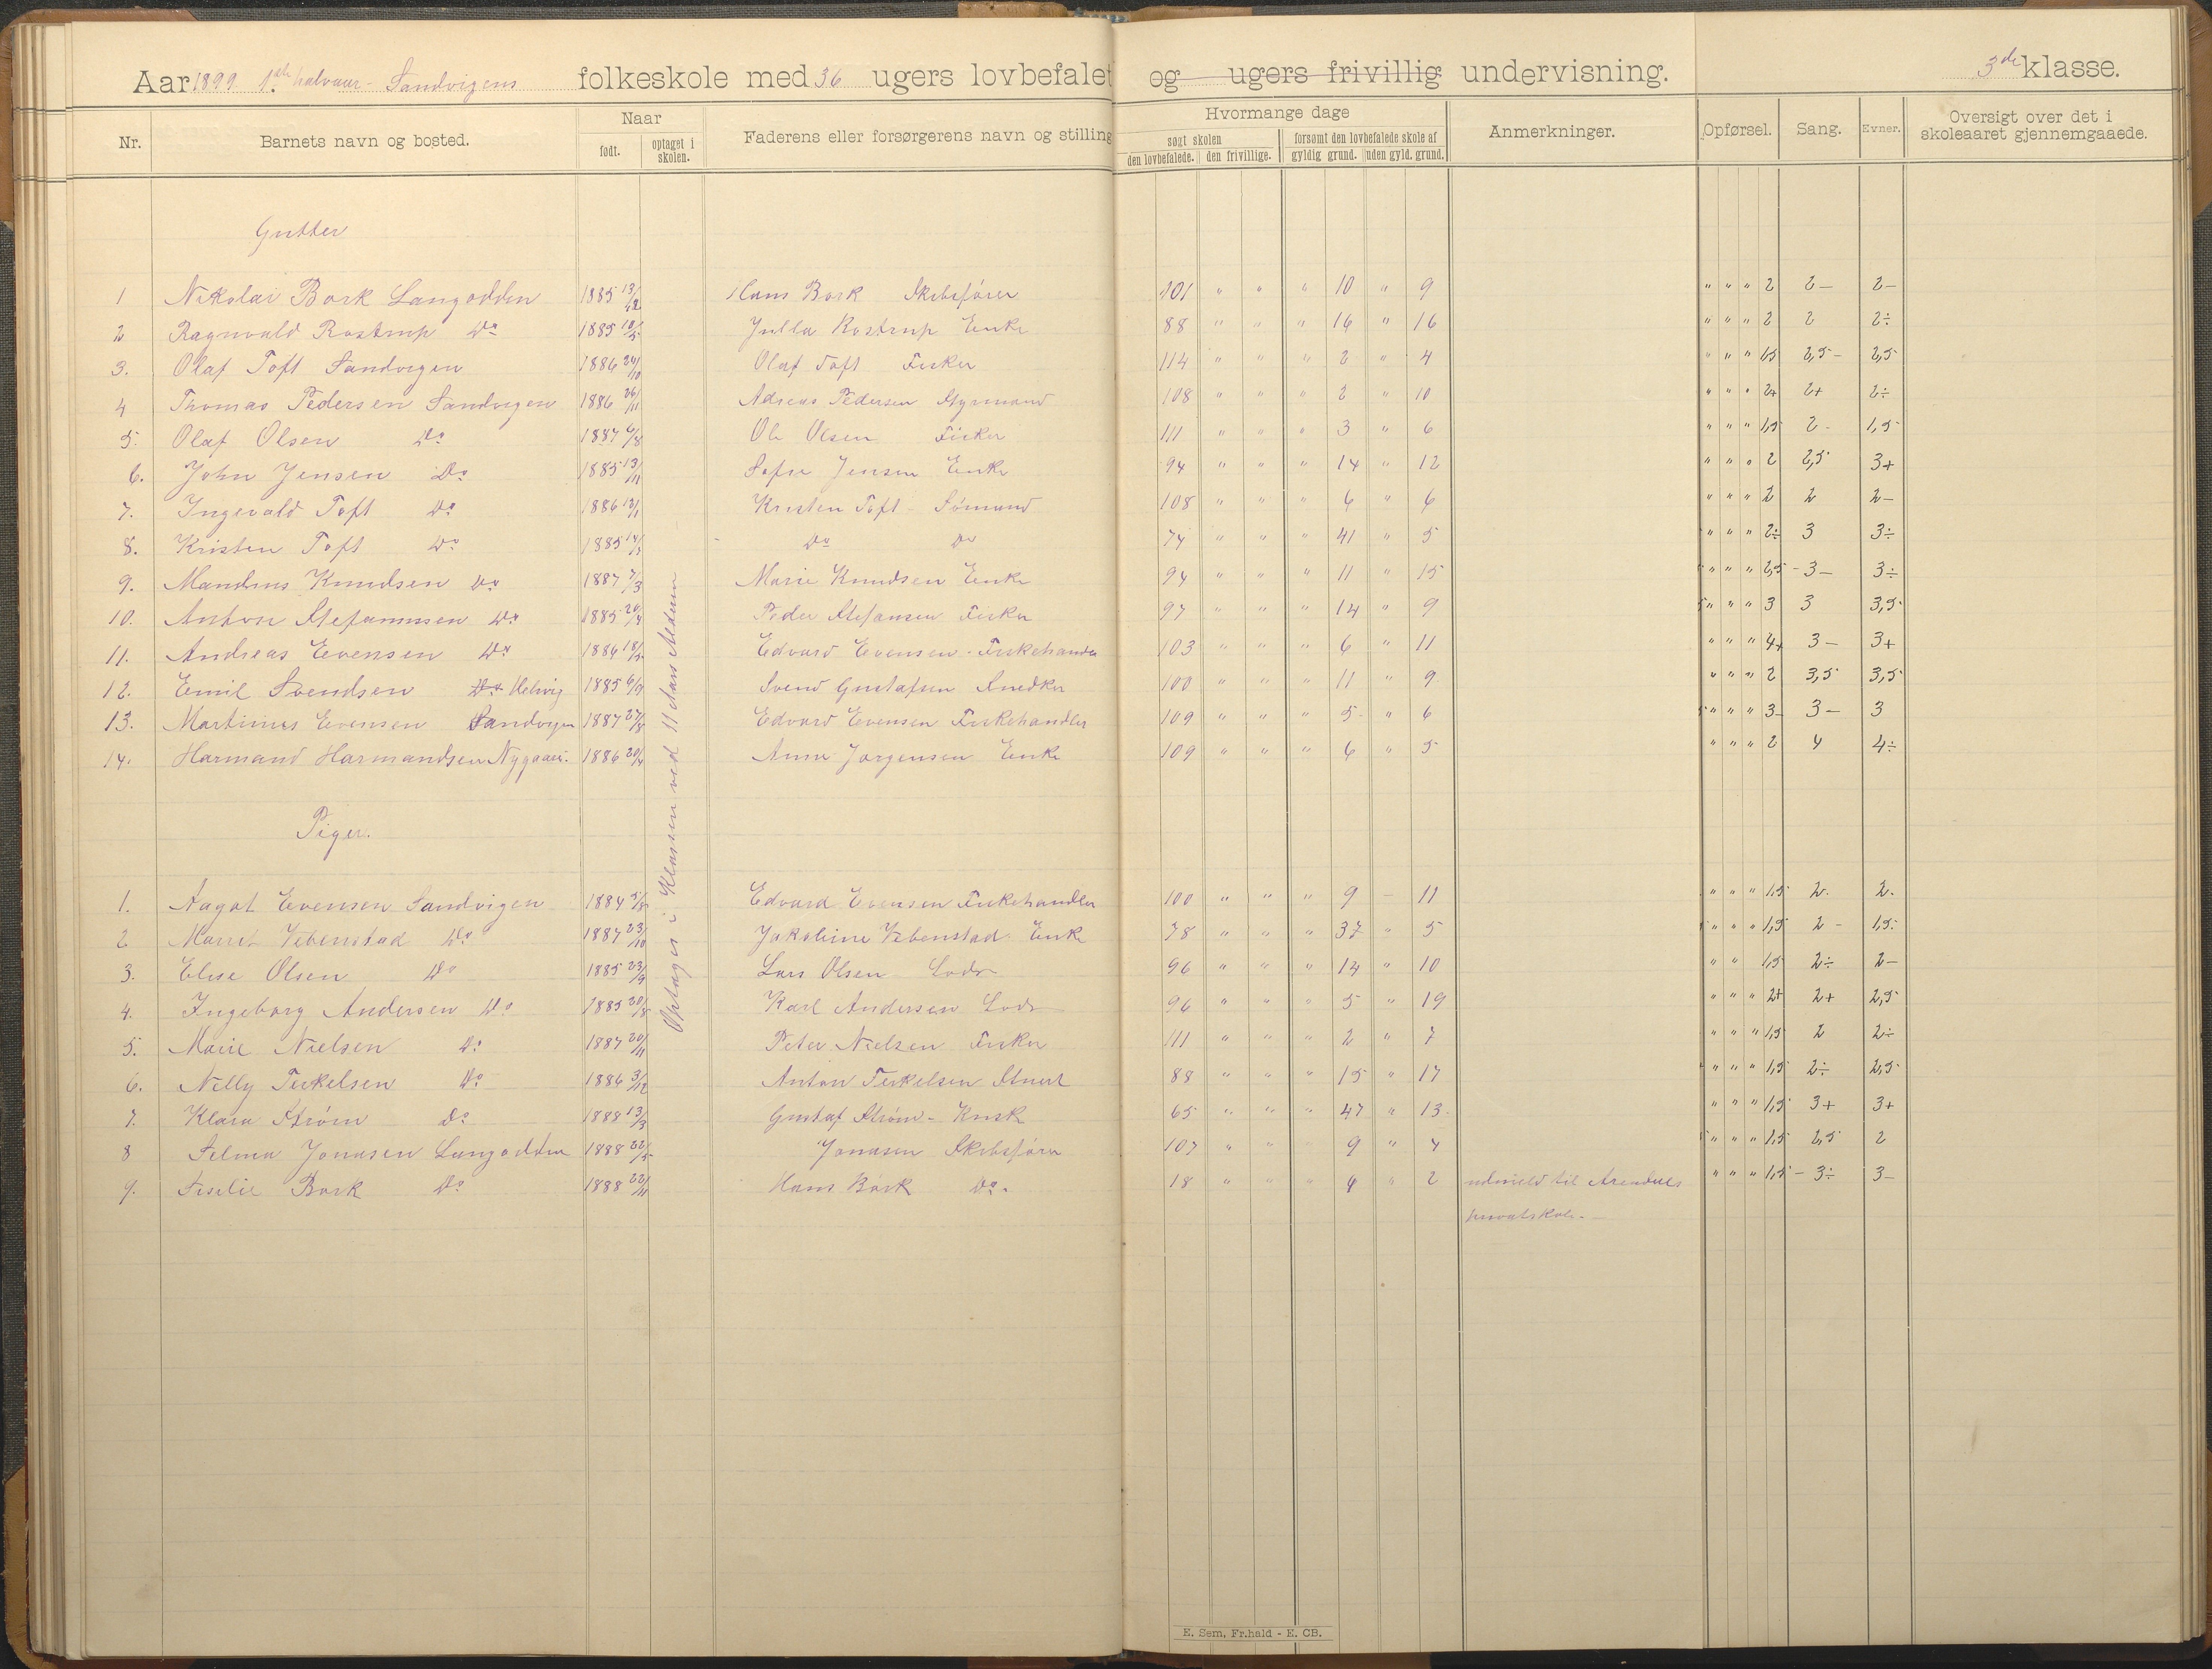 Aar 1899 1ste halvaar - Sandvigens folkeskole med 36 ugers lovbefalet og ugers frivillig undervisning. 3de klasse.
Nr. Barnets navn og bosted. Naar født. optaget i skolen. Faderens eller forsørgerens navn og stilling
Hvormange dage søgt skolen den lovbefalede. den frivillige. forsømt den lovbefalede skole af gyldig grund. uden gyld. grund. Anmerkninger. Opførsel. Sang. Evner. Oversigt over det i skoleaaret gjennemgaaede.
Gutter
1 Nikolai Bork Langodden 1885 13/12 Hans Bork Skibsfører 101 " " " 10 " 9 " " " 2 2- 2-
2 Ragnvald Rostrup Do 1885 10/5 Julla Rostrup Enke 88 " " " 16 " 16 " " " 2 2 2÷
3. Olaf Toft Sandvigen 1886 24/10 Olaf Toft Fisker 114 " " " 2 " 4 " " " 1,5 2,5- 2,5
4 Thomas Pedersen Sandvigen 1886 26/11 Adreas Pedersen Styrmand 108 " " " 2 " 10 " " " 2+ 2+ 2÷
5. Olaf Olsen Do 1887 6/8 Ole Olsen Fisker 111 " " " 3 " 6 " " " 1,5 2- 1,5
6. John Jensen Do 1885 13/11 Sofie Jensen Enke 94 " " " 14 " 12 " " " 2 2,5 3+
7. Ingevald Toft Do 1886 13/1 Kristen Toft - Sømand 108 " " " 6 " 6 " " " 2 2 2-
8. Kristen Toft Do 1885 14/1 Do Do 74 " " " 41 " 5 " " " 2÷ 3 3÷
9. Mandrus Knudsen Do 1887 7/3 Marie Knudsen Enke 94 " " " 11 " 15 " " " 2,5 - 3- 3÷
10. Anton Stefanusen Do 1885 26/4 Peder Stefansen Fisker 97 " " " 14 " 9 " " " 3 3 3,5
11. Andreas Evensen Do 1886 18/5 Edvard Evensen - Fiskehandler 103 " " " 6 " 11 " " " 4+ 3- 3+
12. Emil Svendsen Do Helvig 1885 6/9 Svend Gustafsen Snedker 100 " " " 11 " 9 " " " 2 3,5 3,5
13. Martinius Evensen Sandvigen 1887 27/8 Edvard Evensen Fiskehandler 109 " " " 5 " 6 " " " 3- 3- 3
14. Harmand Harmandsen Nygaar. 1886 20/4 Anne Jorgensen Enke 109 " " " 6 " 5 " " " 2 4 4÷
Optaget i Klassen ved 11 Aars Alderen
Piger.
1. Aagot Evensen Sandvigen 1884 5/8 Edvard Evensen Fiskehandler 100 " " " 9 - 11 " " " 1,5 2. 2.
2 Marit Vebenstad Do 1887 23/10 Jakobine Vebenstad Enke 78 " " " 37 " 5 " " " 1,5 2- 1,5
3. Elise Olsen Do 1885 23/9 Lars Olsen Lods 96 " " " 14 " 10 " " 1,5 2÷ 2-
4. Ingeborg Andersen Do 1885 20/8 Karl Andersen Lods 96 " " " 5 " 19 " " " 2+ 2+ 2,5
5. Marie Nielsen Do 1887 20/11 Peter Nielsen Fisker 111 " " " 2 " 7 " " " 1,5 2 2÷
6. Nelly Terkelsen Do 1886 3/12 Anton Terkelsen Stuert 88 " " " 15 " 17 " " " 1,5 2÷ 2,5
7. Klara Strøm Do 1888 13/3 Gustaf Strøm - Kusk 65 " " " 47 " 13 " " " 1,5 3+ 3+
8 Selma Jonasen Langodden 1888 22/5 Jonasen Skibsfører 107 " " " 9 " 4 " " " 1,5 2,5 2
9. Sisilie Bork Do 1888 22/11 Hans Bork Do. 18 " " " 4 " 2 udmeld til Arendals " " " 1,5 - 3÷ 3-
privatskole.
E. Sem, Fr.hald - E. CB.